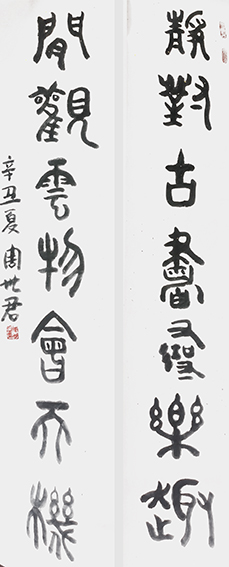 靜對古畫尋樂趣
閒觀雲物會天機
辛丑夏 周世君